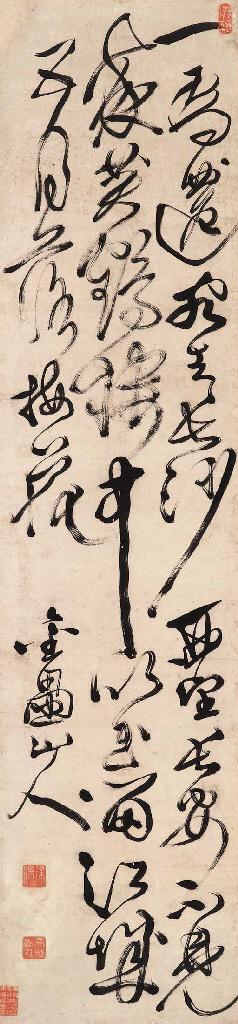 一為遷客去長沙西望長安不見
家黃鶴樓中吹玉笛江城
五月落梅花
金罍山人